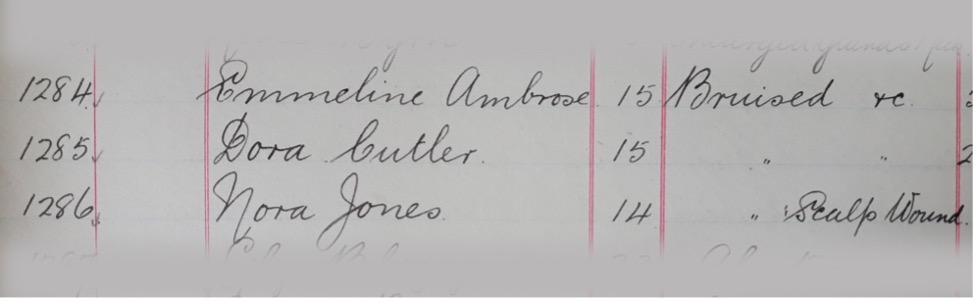 1284 Emmeline Ambrose 15 Bruised &c.
1285 Dora Cutler. 15 " "
1286 Nora Jones. 14 " Scalp Wound.